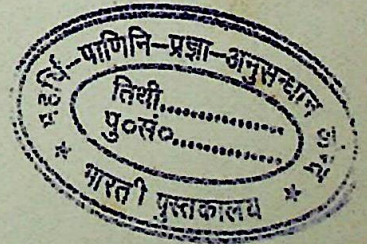 महर्षि-पाणिनि-प्रज्ञा-अनुसन्धान
तिथी..............
पु०सं०..............
* भारती पुस्तकालय *